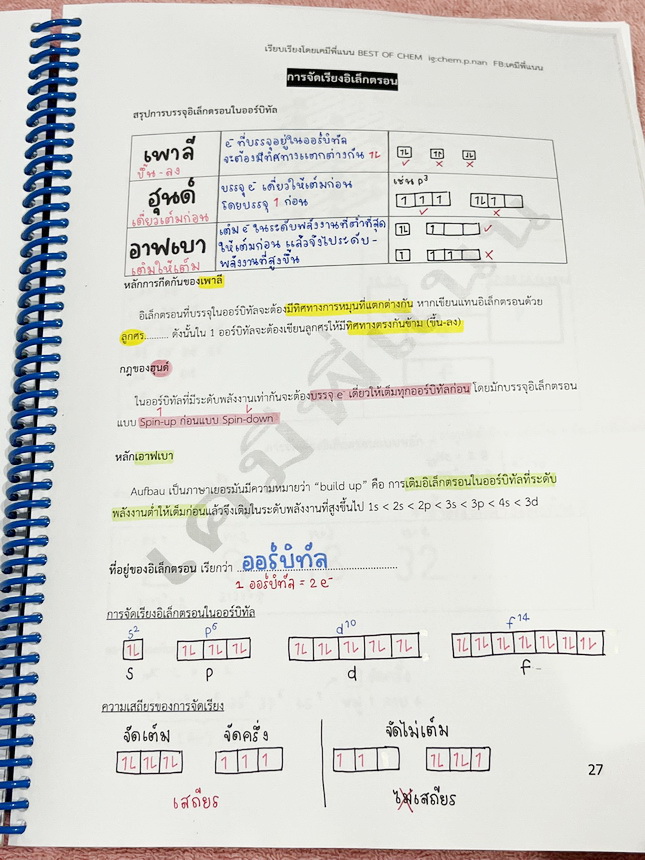 เรียบเรียงโดยเคมีพี่แนน BEST OF CHEM ig:chem.p.nan FB:เคมีพี่แนน
การจัดเรียงอิเล็กตรอน
สรุปการบรรจุอิเล็กตรอนในออร์บิทัล
เพาลี
ขึ้น - ลง
e⁻ ที่บรรจุอยู่ในออร์บิทัล
จะต้องมีทิศทางแตกต่างกัน 1L
ฮุนด์
เดี่ยวเต็มก่อน
บรรจุ e⁻ เดี่ยวให้เต็มก่อน
โดยบรรจุ 1 ก่อน
เช่น p³
อาฟเบา
เติมให้เต็ม
เติม e⁻ ในระดับพลังงานที่ต่ำที่สุด
ให้เต็มก่อน แล้วจึงไประดับ-
พลังงานที่สูงขึ้น
หลักการกีดกันของเพาลี
อิเล็กตรอนที่บรรจุในออร์บิทัลจะต้องมีทิศทางการหมุนที่แตกต่างกัน หากเขียนแทนอิเล็กตรอนด้วย
ลูกศร.......... ดังนั้นใน 1 ออร์บิทัลจะต้องเขียนลูกศรให้มีทิศทางตรงกันข้าม (ขึ้น-ลง)
กฎของฮุนด์
ในออร์บิทัลที่มีระดับพลังงานเท่ากันจะต้องบรรจุ e⁻ เดี่ยวให้เต็มทุกออร์บิทัลก่อน โดยมักบรรจุอิเล็กตรอน
แบบ Spin-up ก่อนแบบ Spin-down
หลักเอาฟเบา
Aufbau เป็นภาษาเยอรมันมีความหมายว่า "build up" คือ การเติมอิเล็กตรอนในออร์บิทัลที่ระดับ
พลังงานต่ำให้เต็มก่อนแล้วจึงเติมในระดับพลังงานที่สูงขึ้นไป 1s < 2s < 2p < 3s < 3p < 4s < 3d
ที่อยู่ของอิเล็กตรอน เรียกว่า ออร์บิทัล
1 ออร์บิทัล = 2 e⁻
การจัดเรียงอิเล็กตรอนในออร์บิทัล
s² p⁶ d¹⁰ f¹⁴
1L 1L 1L 1L 1L 1L 1L 1L 1L 1L 1L 1L 1L 1L 1L 1L
s p d f
ความเสถียรของการจัดเรียง
จัดเต็ม จัดครึ่ง จัดไม่เต็ม
1L 1L 1L 1 1 1 1 1 1L 1L 1
เสถียร ไม่เสถียร
27
เคมีพี่แนน